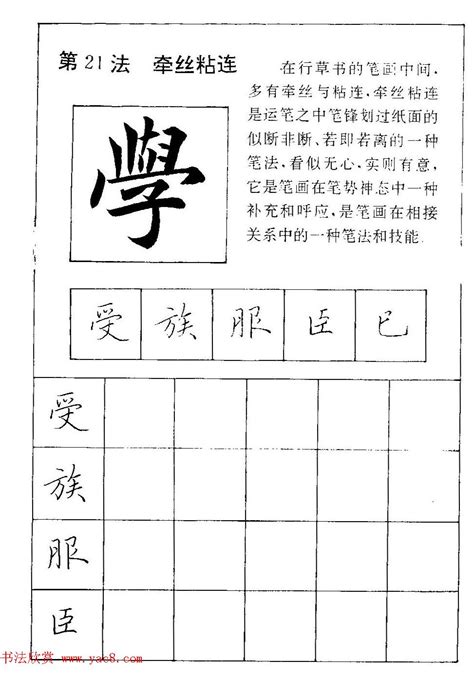 第21法 牵丝粘连
在行草书的笔画中间，
多有牵丝与粘连，牵丝粘连
是运笔之中笔锋划过纸面的
似断非断、若即若离的一种
笔法，看似无心，实则有意，
它是笔画在笔势神态中一种
补充和呼应，是笔画在相接
关系中的一种笔法和技能.
學
受 族 服 臣 已
受
族
服
臣
书法欣赏 www.yac8.com